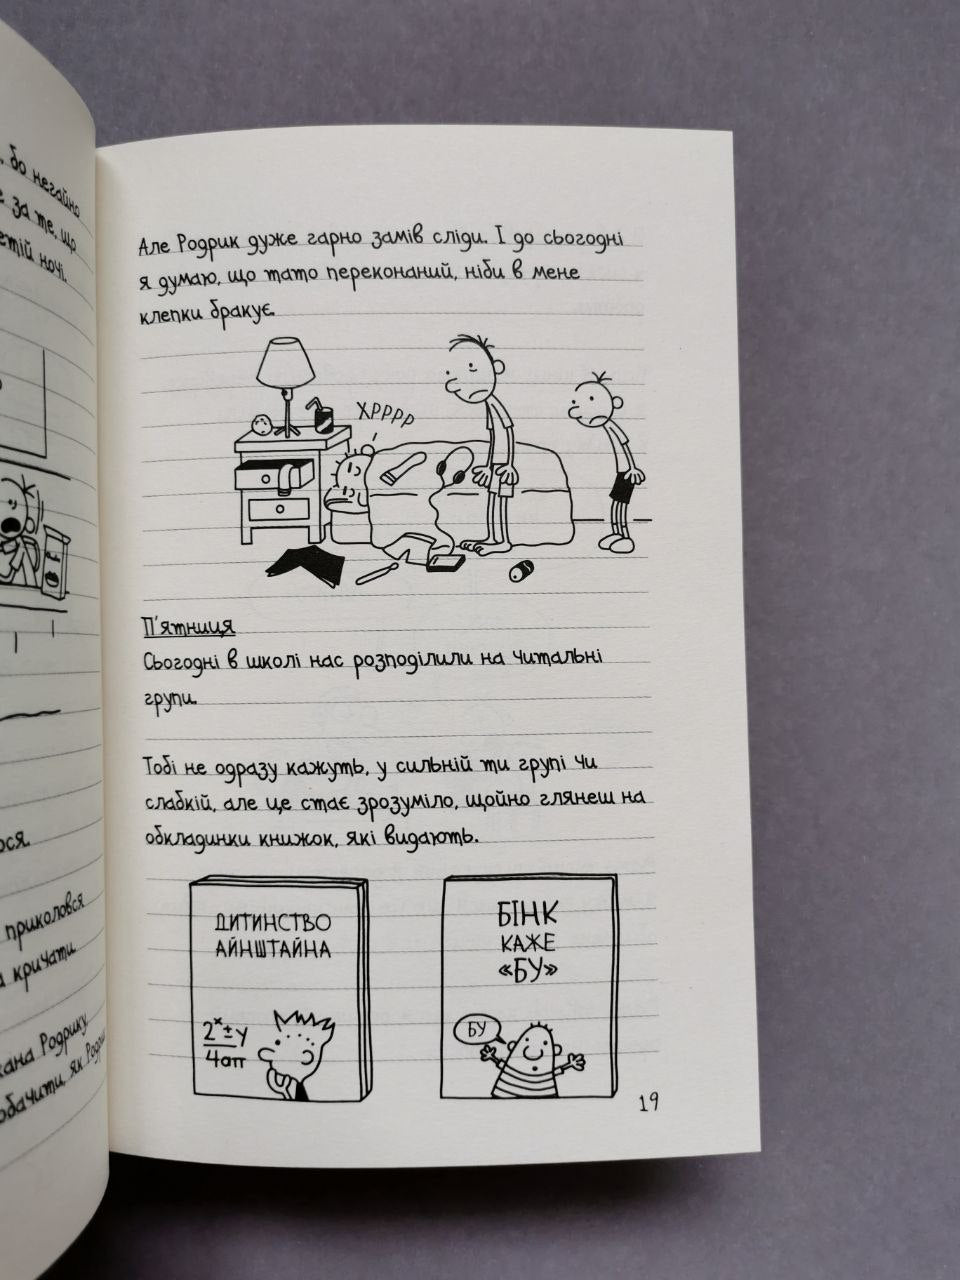 бо негайно
за те, що
ночі.
ося.
приколовся
кричати.
Родрику.
як
Але Родрик дуже гарно замів сліди. І до сьогодні
я думаю, що тато переконаний, ніби в мене
клепки бракує.
ХРРРР
П'ятниця
Сьогодні в школі нас розподілили на читальні
групи.
Тобі не одразу кажуть, у сильній ти групі чи
слабкій, але це стає зрозуміло, щойно глянеш на
обкладинки книжок, які видають.
ДИТИНСТВО
АЙНШТАЙНА
2ˣ ± У
4ап
БІНК
КАЖЕ
«БУ»
БУ
19